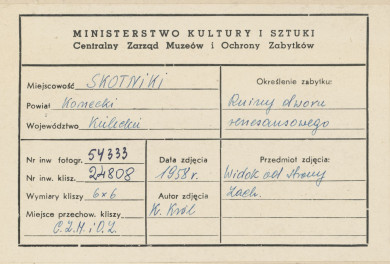 MINISTERSTWO KULTURY I SZTUKI
Centralny Zarząd Muzeów i Ochrony Zabytków
Miejscowość SKOTNIKI
Powiat Konecki
Województwo Kielckie
Określenie zabytku:
Ruiny dworu
renesansowego
Nr inw fotogr. 54333
Nr inw. klisz. 24808
Wymiary kliszy 6x6
Miejsce przechow. kliszy
C.Z.M.i O.Z.
Data zdjęcia
1958 r.
Autor zdjęcia
K. Król
Przedmiot zdjęcia:
Widok od strony
Zach.